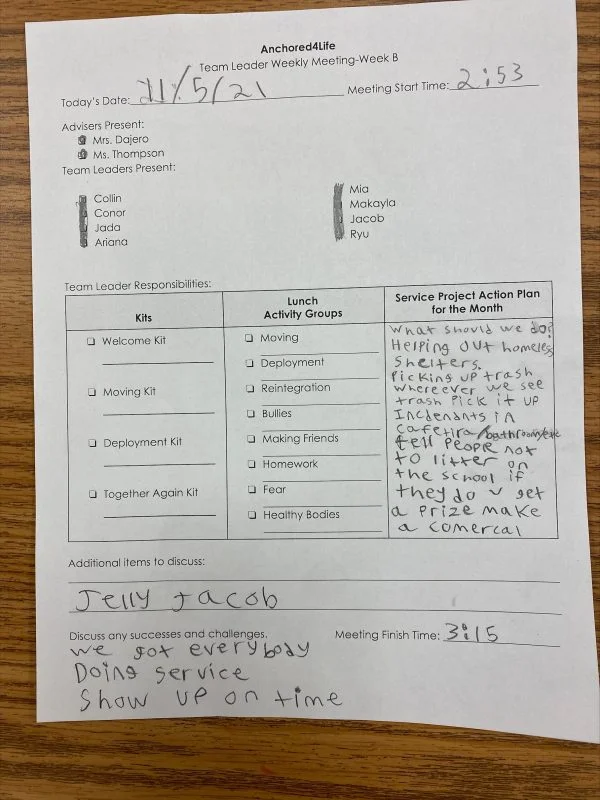 Anchored4Life
Team Leader Weekly Meeting-Week B
Today's Date: 11/5/21 Meeting Start Time: 2:53
Advisers Present:
Mrs. Dajero
Ms. Thompson
Team Leaders Present:
Collin
Conor
Jada
Ariana
Mia
Makayla
Jacob
Ryu
Team Leader Responsibilities:
Kits
Welcome Kit
Moving Kit
Deployment Kit
Together Again Kit
Lunch
Activity Groups
Moving
Deployment
Reintegration
Bullies
Making Friends
Homework
Fear
Healthy Bodies
Service Project Action Plan
for the Month
What should we do?
Helping out homeless
Shelters.
Picking up trash
whereever we see
trash pick it up
Incdenants in
cafetira/bathroom
tell people not
to litter on
the school if
they do u get
a prize make
a comercal
Additional items to discuss:
Jelly Jacob
Discuss any successes and challenges. Meeting Finish Time: 3:15
we got everybody
Doing service
Show up on time